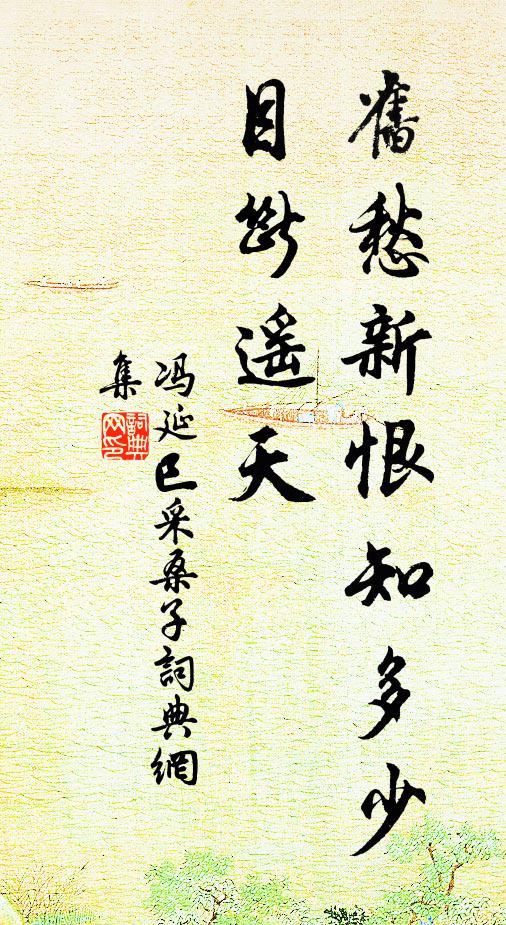 舊愁新恨知多少
目斷遥天
冯延巳采桑子詞典網
集
詞典
网印